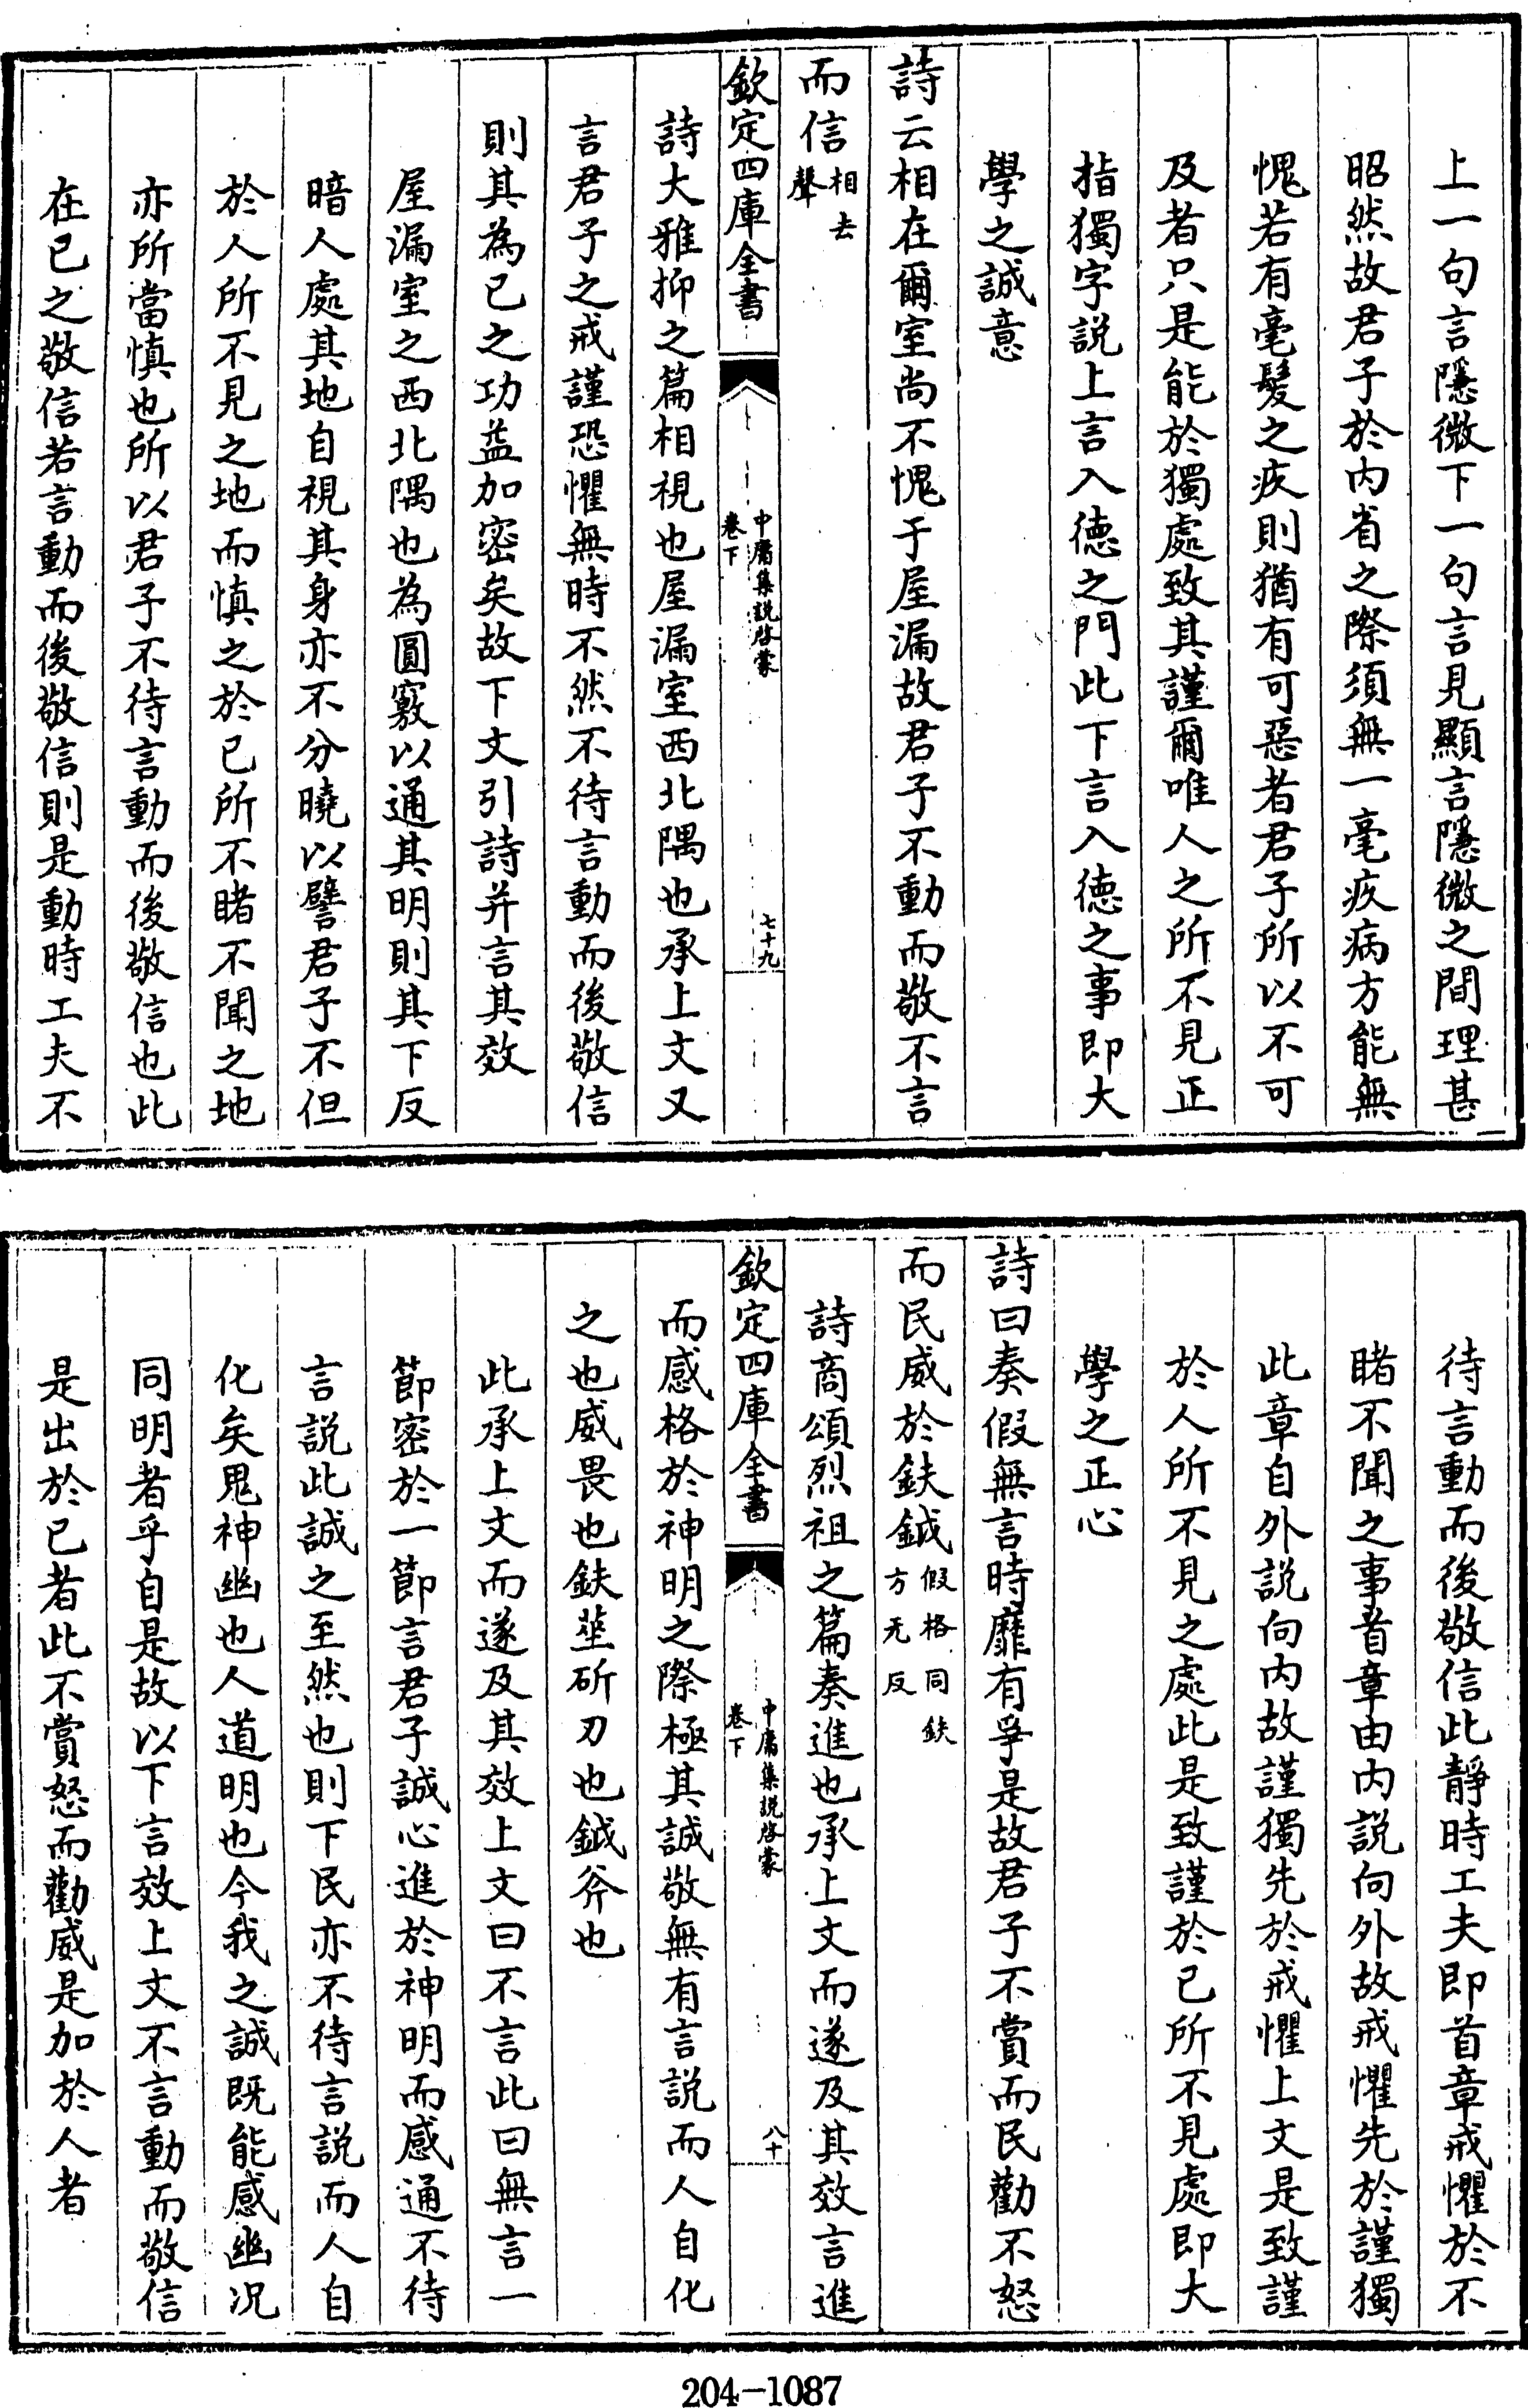 上一句言隱微下一句言見顯言隱微之間理甚
昭然故君子於内省之際須無一毫疚病方能無
愧若有毫髮之疚則猶有可惡者君子所以不可
及者只是能於獨處致其謹爾唯人之所不見正
指獨字説上言入徳之門此下言入徳之事即大
學之誠意
詩云相在爾室尚不愧于屋漏故君子不動而敬不言
而信相去聲
欽定四庫全書
中庸集説啓蒙
卷下
七十九
詩大雅抑之篇相視也屋漏室西北隅也承上文又
言君子之戒謹恐懼無時不然不待言動而後敬信
則其為已之功益加密矣故下文引詩并言其效
屋漏室之西北隅也為圓竅以通其明則其下反
暗人處其地自視其身亦不分曉以譬君子不但
於人所不見之地而慎之於已所不睹不聞之地
亦所當慎也所以君子不待言動而後敬信也此
在已之敬信若言動而後敬信則是動時工夫不
待言動而後敬信此靜時工夫即首章戒懼於不
睹不聞之事首章由内説向外故戒懼先於謹獨
此章自外説向内故謹獨先於戒懼上文是致謹
於人所不見之處此是致謹於已所不見處即大
學之正心
詩曰奏假無言時靡有爭是故君子不賞而民勸不怒
而民威於鈇鉞假格同鈇方无反
詩商頌烈祖之篇奏進也承上文而遂及其效言進
欽定四庫全書
中庸集説啓蒙
卷下
八十
而感格於神明之際極其誠敬無有言説而人自化
之也威畏也鈇莝斫刀也鉞斧也
此承上文而遂及其效上文曰不言此曰無言一
節密於一節言君子誠心進於神明而感通不待
言説此誠之至然也則下民亦不待言説而人自
化矣鬼神幽也人道明也今我之誠既能感幽况
同明者乎自是故以下言效上文不言動而敬信
是出於已者此不賞怒而勸威是加於人者
204-1087